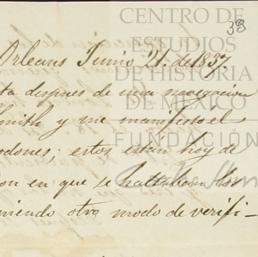 CENTRO DE
ESTUDIOS
DE HISTORIA
DE MEXICO
FUNDACIÓN
38
Orleans Junio 21. de 1857
ta despues de una navegacion
Smith y me manifesto el
odones; estos estan hoy de
on en que se hallaban los
niendo otro modo de verifi-